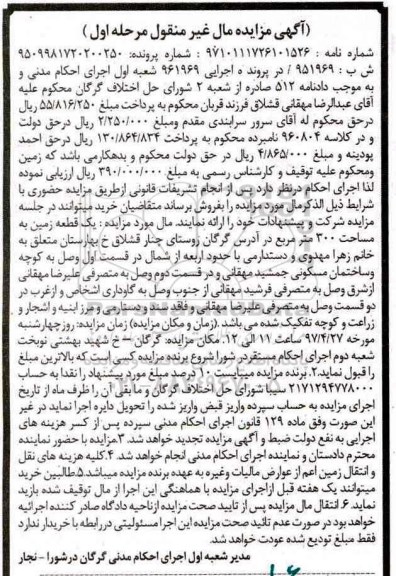 (آگهی مزایده مال غیر منقول مرحله اول )
شماره نامه : ۹۷۱۰۱۱۱۷۲۶۱۰۱۵۲۶ : شماره پرونده: ۹۵۰۹۹۸۱۷۲۰۲۰۰۲۵۰
ش ب : ۹۵۱۹۶۹ / در پرونده اجرایی ۹۶۱۹۶۹ شعبه اول اجرای احکام مدنی و
به موجب دادنامه ۵۱۲ صادره از شعبه ۲ شورای حل اختلاف گرگان محکوم علیه
آقای عبدالرضا مهقانی قشلاق فرزند قربان محکوم به پرداخت مبلغ ۵۵/۸۱۶/۲۵۰ ریال
درحق محکوم له آقای سرور سرابندی مقدم ومبلغ ۲/۲۵۰/۰۰۰ ریال درحق دولت
و در کلاسه ۹۶۰۸۰۴ نامبرده محکوم به پرداخت ۱۳۰/۸۶۴/۸۳۴ ریال درحق احمد
پودینه و مبلغ ۴/۸۶۵/۰۰۰ ریال در حق دولت محکوم و بدهکارمی باشد که زمین
ومحکوم علیه توقیف و کارشناس رسمی به مبلغ ۳۹۰/۰۰۰/۰۰۰ ریال ارزیابی نموده
لذا اجرای احکام درنظر دارد پس از انجام تشریفات قانونی ازطریق مزایده حضوری با
شرایط ذیل الذکرمال مورد مزایده را بفروش برساند متقاضیان خرید میتوانند در جلسه
مزایده شرکت و پیشنهادات خود را ارائه نمایند. مال مورد مزایده : یک قطعه زمین به
مساحت ۳۰۰ متر مربع در آدرس گرگان روستای چنار قشلاق خ بهارستان متعلق به
خانم زهرا مهدوی و دستدارمی با حدود اربعه از شمال در قسمت اول وصل به کوچه
وساختمان مسکونی جمشید مهقانی و در قسمت دوم وصل به متصرفی علیرضا مهقانی
ازشرق وصل به متصرفی فرشید مهقانی از جنوب وصل به گاوداری اشخاص و ازغرب در
دو قسمت وصل به متصرفی علیرضا مهقانی و فاقد سند و دستدارمی و مبرز ابنیه و اشجار و
زراعت و کوچه تفکیک شده می باشد .(زمان و مکان مزایده) زمان مزایده: روز چهارشنبه
مورخه ۹۷/۴/۲۷ ساعت ۱۱ الی ۱۲. مکان مزایده: گرگان – خ شهید بهشتی نوبخت
شعبه دوم اجرای احکام مستقردر شورا شروع برنده مزایده کسی است که بالاترین مبلغ
را قبول نماید.۲. برنده مزایده میبایست ۱۰ درصد مبلغ مورد پیشنهاد را نقدا به حساب
۲۱۷۱۲۹۴۷۷۸۰۰۰ سیبا شورای حل اختلاف گرگان و مابقی آن را ظرف ماه از تاریخ
اجرای مزایده به حساب سپرده واریز قبض واریز شده را تحویل دایره اجرا نماید در غیر
این صورت وفق ماده ۱۲۹ قانون اجرای احکام مدنی سپرده پس از کسر هزینه های
اجرایی به نفع دولت ضبط و آگهی مزایده تجدید خواهد شد. ۳مزایده با حضور نماینده
محترم دادستان و نماینده اجرای احکام مدنی انجام خواهد شد. ۴.کلیه هزینه های نقل
و انتقال زمین اعم از عوارض مالیات وغیره به عهده برنده مزایده میباشد.۵.طالبین خرید
میتوانند یک هفته قبل ازاجرای مزایده با هماهنگی این اجرا از مال توقیف شده بازید
نماید. ۶. انتقال مال مزایده پس از تایید صحت مزایده ازناحیه دادگاه صادر کننده اجرائیه
خواهد بود در صورت عدم تائید صحت مزایده این اجرا مسئولیتی دررابطه با خریدار ندارد
فقط مبلغ تودیع شده عودت خواهد شد.
مدیر شعبه اول اجرای احکام مدنی گرگان درشورا – نجار